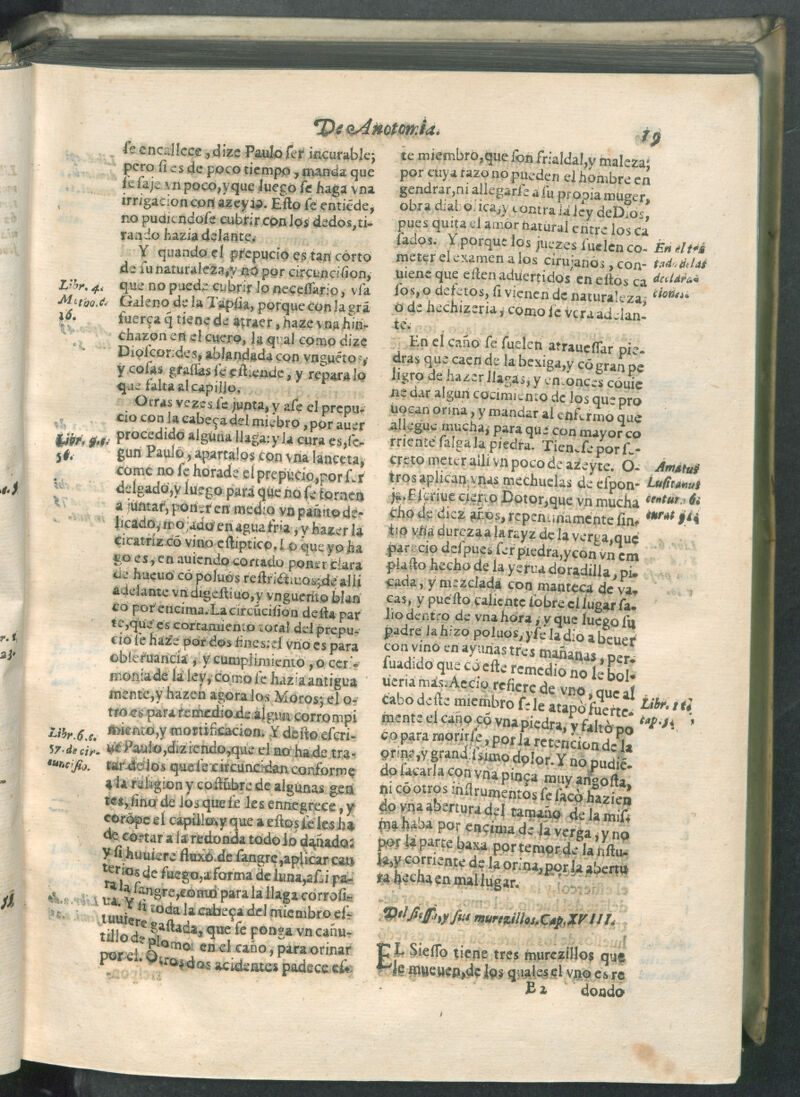 De Anotomia.
19
se encallece, dize Paulo ser incurable;
pero si es de poco tiempo, manda que
se saje vn poco, y que luego se haga vna
irrigacion con azeyte. Esto se entiẽde,
no pudiendose cubrir con los dedos, ti-
rando hazia delante.
Y quando el prepucio es tan corto
de su naturaleza, y nó por circuncision,
que no puede cubrir lo necessario, vsa
Galeno de la Tapsia, porque con la grã
fuerça q̃ tiene de atraer, haze vna hin-
chazon en el cuero, la qual como dize
Dioscorides, ablandada con vnguẽto,
y cosas grassas se estiende, y repara lo
que falta al capillo.
Otras vezes se junta, y ase el prepu-
cio con la cabeça del miẽbro, por auer
procedido alguna llaga: y la cura es, se-
gun Paulo, apartalos con vna lanceta,
como no se horade el prepucio, por ser
delgado, y luego para que no se tornen
a juntar, poner en medio vn pañito de-
licado, mojado en agua fria, y hazer la
cicatriz cõ vino estiptico. Lo que yo ha
go es, en auiendo cortado poner clara
de hueuo cõ poluos restrictiuos; de alli
adelante vn digestiuo, y vnguento blan
co por encima. La circũcision desta par
te, que es cortamiento total del prepu-
cio se haze por dos fines: el vno es para
obseruancia, y cumplimiento, o ceri-
monia de la ley, como se hazia antigua
mente, y hazen agora los Moros; el o-
tro es para remedio de algun corrompi
miento, y mortificacion. Y desto escri-
ue Paulo, diziendo, que el no ha de tra-
tar de los que se circuncidan conforme
a la religion y costũbre de algunas gen
tes, sino de los que se les ennegrece, y
corõpe el capillo, y que a estos se les ha
de cortar a la redonda todo lo dañado:
y si huuiere fluxo de sangre, aplicar cau
terios de fuego, a forma de luna, assi pa-
ra la sangre, como para la llaga corrosi-
ua. Y si toda la cabeça del miembro es-
tuuiere gastada, que se ponga vn cañu-
tillo de plomo en el caño, para orinar
por el. Otros dos acidentes padece es-
Libr. 4.
Metho. c.
16.
Libr. 6.c.
56.
Libr. 6. c.
57. de cir-
cuncisio.
te miembro, que son frialdal, y maleza;
por cuya razo no pueden el hombre en
gendrar, ni allegarse a su propia muger,
obra diabolica, y contra la ley de Dios,
pues quita el amor natural entre los ca
sados. Y porque los juezes suelen co-
meter el examen a los cirujanos, con-
uiene que esten aduertidos en estos ca
sos, o defetos, si vienen de naturaleza,
o de hechizeria, como se vera adelan-
te.
En el caño se suelen atrauessar pie-
dras que caen de la bexiga, y cõ gran pe
ligro de hazer llagas, y entonces cõuie
ne dar algun cocimiento de los que pro
uocan orina, y mandar al enfermo que
allegue mucha, para que con mayor co
rriente salga la piedra. Tienese por se-
creto meter alli vn poco de azeyte. O-
tros aplican vnas mechuelas de espon-
ja. Escriue cierto Dotor, que vn mucha
cho de diez años, repentinamente sin-
tio vña dureza a la rayz de la verga, que
parecio despues ser piedra, y con vn em
plasto hecho de la yerua doradilla, pi-
cada, y mezclada con manteca de va-
cas, y puesto caliente sobre el lugar sa-
lio dentro de vna hora, y que luego su
padre la hizo poluos, y se la dio a beuer
con vino en ayunas tres mañanas, per-
suadido que cõ este remedio no le bol-
ueria mas. Aecio refiere de vno, que al
cabo deste miembro se le atapò fuerte-
mente el caño cõ vna piedra, y faltò po
co para morirse, por la retencion de la
orina, y grandissimo dolor. Y no pudiẽ-
do sacarla con vna pinça muy angosta,
ni cõ otros instrumentos se sacò hazien
do vna abertura del tamaño de la mis-
ma haba por encima de la verga, y no
por la parte baxa por temor de la fistu-
la, y corriente de la orina, por la abertu
ra hecha en mal lugar.
En el trã
tad. de las
declara-
ciones.
Amatus
Lusitanus
centur. 6.
curat
Libr.
cap.
Del siesso, y sus murezillos. Cap. XVIII.
EL Siesso tiene tres murezillos que
le mueuen, de los quales el vno es re
E 2 dondo